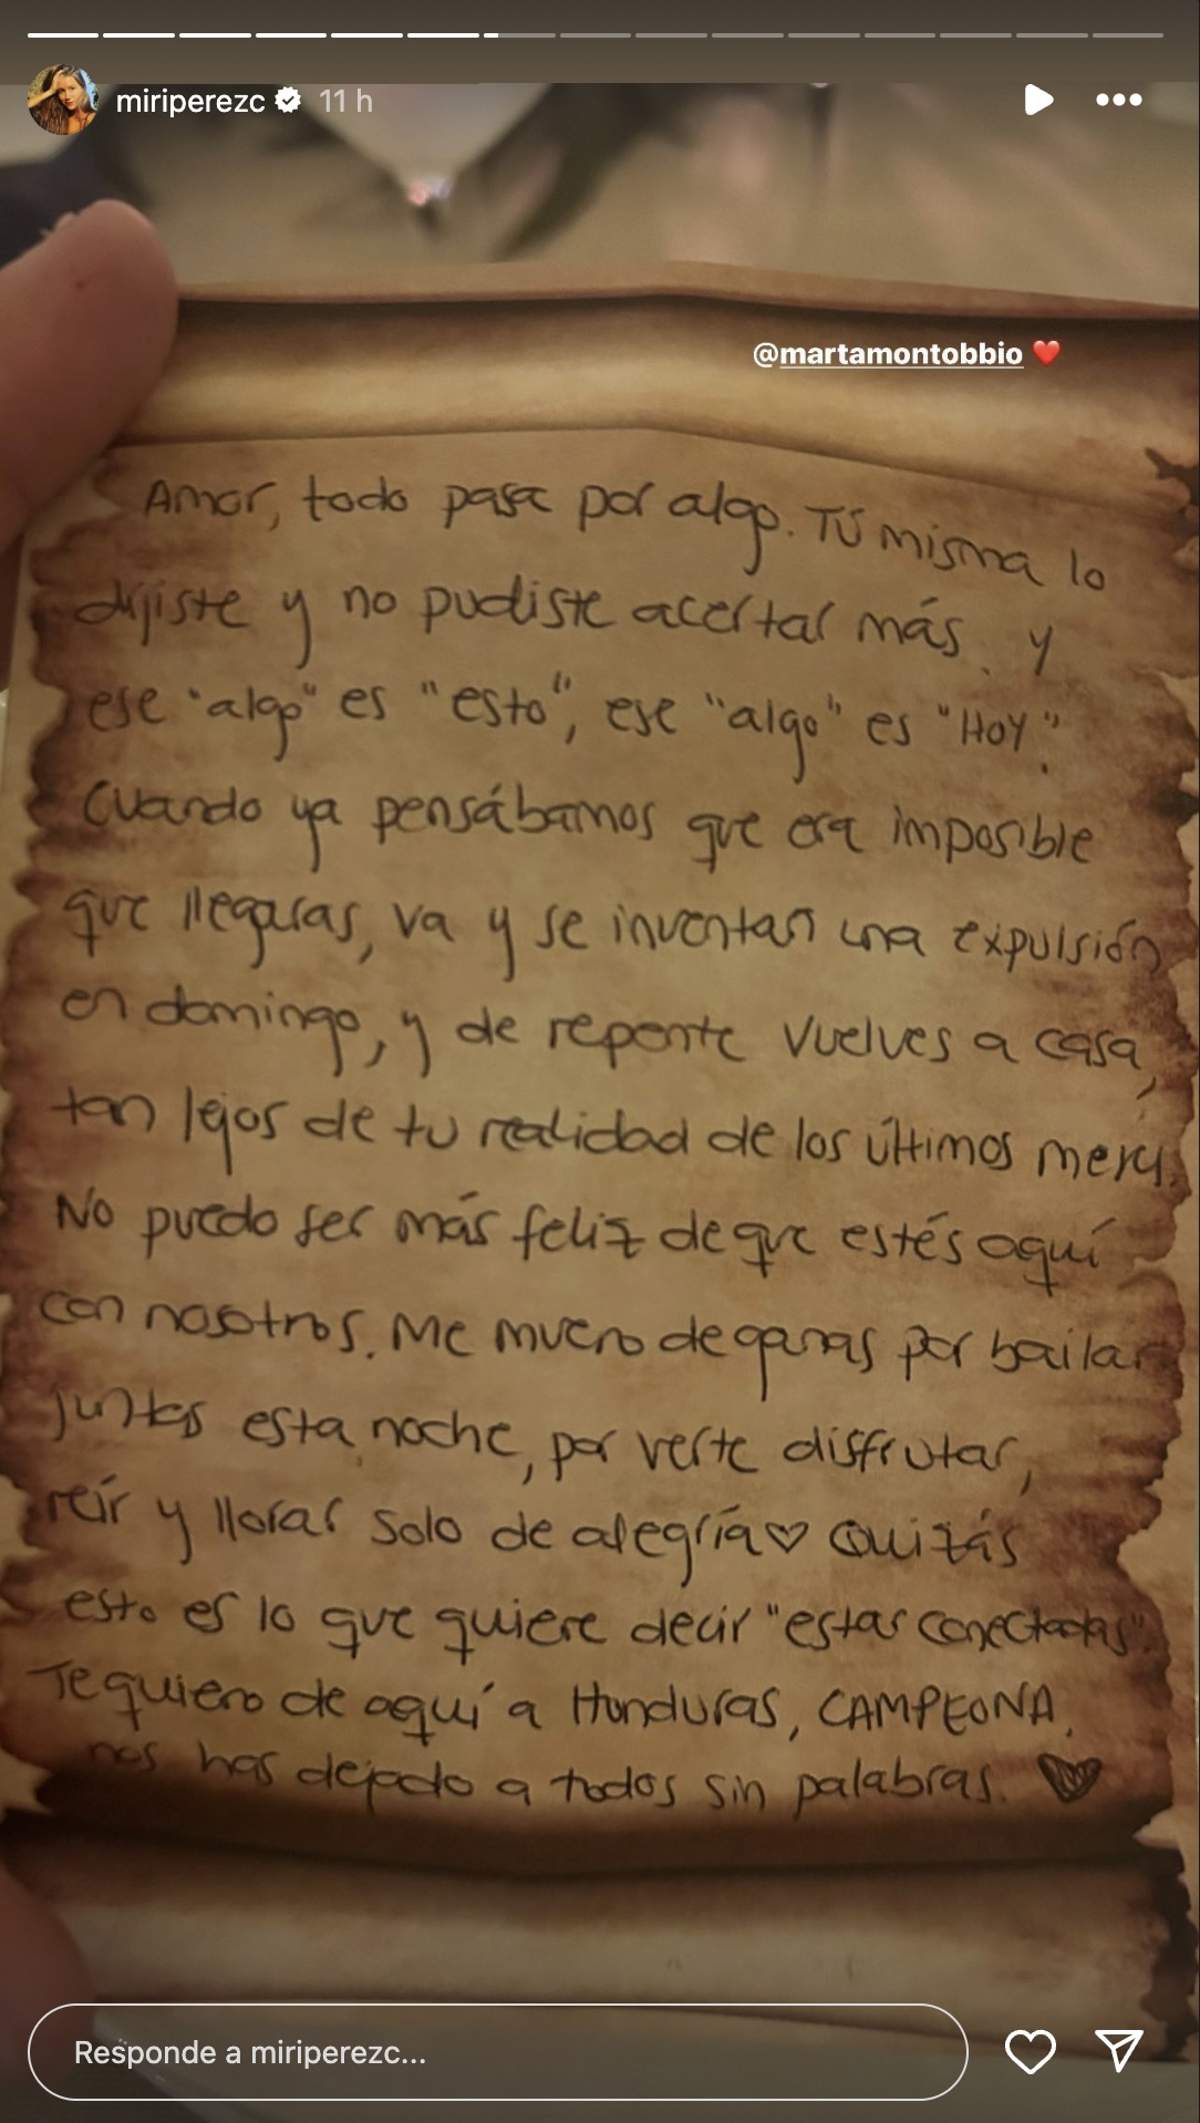 miriperezc 11 h
@martamontobbio ❤️
Amor, todo pasa por algo. Tú misma lo
dijiste y no pudiste acertar más. Y
ese "algo" es "esto", ese "algo" es "HOY".
Cuando ya pensábamos que era imposible
que llegaras, va y se inventan una expulsión
en domingo, y de repente vuelves a casa,
tan lejos de tu realidad de los últimos meses.
No puedo ser más feliz de que estés aquí
con nosotros. Me muero de ganas por bailar
juntas esta noche, por verte disfrutar,
reír y llorar solo de alegría ♡ Quizás
esto es lo que quiere decir "estar conectadas".
Te quiero de aquí a Honduras, CAMPEONA,
nos has dejado a todos sin palabras. ♥
Responde a miriperezc...